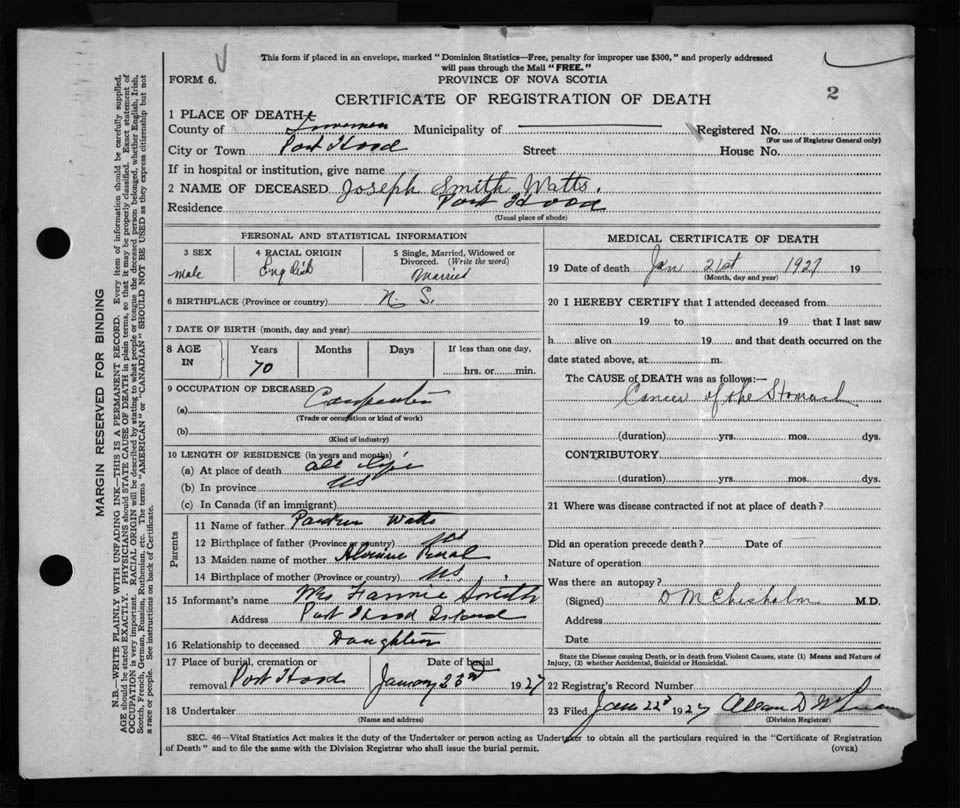 This form if placed in an envelope, marked "Dominion Statistics—Free, penalty for improper use $300," and properly addressed
will pass through the Mail "FREE."
FORM 6.
PROVINCE OF NOVA SCOTIA
CERTIFICATE OF REGISTRATION OF DEATH
2
1 PLACE OF DEATH
County of Inverness Municipality of Registered No.
(For use of Registrar General only)
City or Town Port Hood Street House No.
If in hospital or institution, give name
2 NAME OF DECEASED Joseph Smith Watts.
Residence Port Hood
(Usual place of abode)
PERSONAL AND STATISTICAL INFORMATION
3 SEX
male
4 RACIAL ORIGIN
English
5 Single, Married, Widowed or
Divorced. (Write the word)
Married
6 BIRTHPLACE (Province or country) N. S.
7 DATE OF BIRTH (month, day and year)
8 AGE
IN
Years
70
Months
Days
If less than one day,
hrs. or min.
9 OCCUPATION OF DECEASED
(a) Carpenter
(Trade or occupation or kind of work)
(b)
(Kind of industry)
10 LENGTH OF RESIDENCE (in years and months)
(a) At place of death all life
(b) In province
(c) In Canada (if an immigrant)
Parents
11 Name of father Watts
12 Birthplace of father (Province or country) NS
13 Maiden name of mother
14 Birthplace of mother (Province or country) NS
15 Informant's name Mrs Fannie Smith
Address Port Hood Island
16 Relationship to deceased Daughter
17 Place of burial, cremation or
removal Port Hood
Date of burial
January 23rd 1927
18 Undertaker
(Name and address)
MEDICAL CERTIFICATE OF DEATH
19 Date of death Jan 21st 1927 19
(Month, day and year)
20 I HEREBY CERTIFY that I attended deceased from
19 to 19 that I last saw
h alive on 19 and that death occurred on the
date stated above, at m.
The CAUSE of DEATH was as follows:—
Cancer of the Stomach
(duration) yrs. mos. dys.
CONTRIBUTORY
(duration) yrs. mos. dys.
21 Where was disease contracted if not at place of death?
Did an operation precede death? Date of
Nature of operation
Was there an autopsy?
(Signed) D M Chisholm M.D.
Address
Date
State the Disease causing Death, or in death from Violent Causes, state (1) Means and Nature of
Injury, (2) whether Accidental, Suicidal or Homicidal.
22 Registrar's Record Number
23 Filed Jan 22d 1927
(Division Registrar)
SEC. 46—Vital Statistics Act makes it the duty of the Undertaker or person acting as Undertaker to obtain all the particulars required in the "Certificate of Registration
of Death" and to file the same with the Division Registrar who shall issue the burial permit.
(OVER)
MARGIN RESERVED FOR BINDING
N.B.—WRITE PLAINLY WITH UNFADING INK—THIS IS A PERMANENT RECORD. Every item of information should be carefully supplied.
AGE should be stated EXACTLY. PHYSICIANS should STATE CAUSE OF DEATH in plain terms, so that it may be properly classified. Exact statement of
OCCUPATION is very important. RACIAL ORIGIN will be described by stating to what people or tongue the deceased person belonged, whether English, Irish,
Scotch, French, German, Russian, Ruthenian, etc. The terms "AMERICAN" or "CANADIAN" SHOULD NOT BE USED as they express citizenship but not
a race or people. See instructions on back of Certificate.